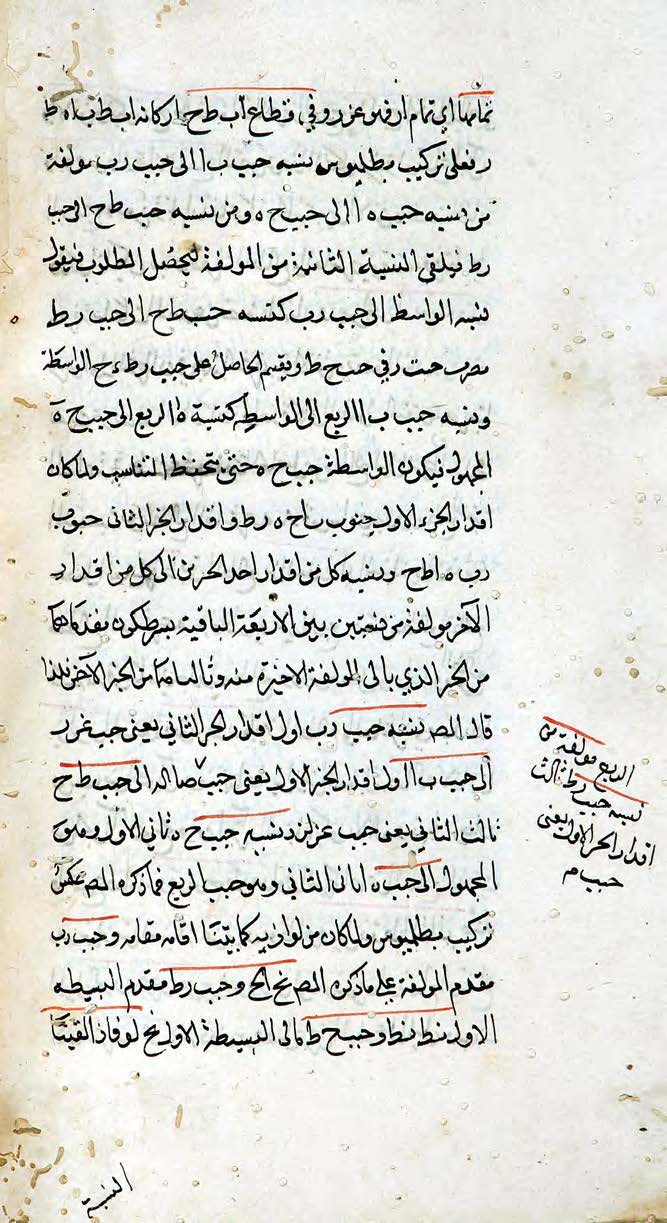 تمامها اي تمام ارفهو عزر وفي قطاع اب ط ح اركانه اب ط ب اه ط
ر فعلى تركيب بطلميوس نسبة جيب ب ا الى جيب رب مولفة
من نسبة جيب ه ا الى جيب ح ه ومن نسبة جيب ط ح الى جيب
رط فيلقى النسبة الثانية من المولفة ليحصل المطلوب فيقول
نسبة الواسط الى جيب رب كنسبة جيب ط ح الى جيب رط
في ح ط ويقسم الحاصل على جيب رط الواسطة
ونسبة جيب ب ا الربع الى الواسطة كنسبة ه ا الربع الى جيب ح ه
المجهول فيكون الواسطة جيب ح ه حتى يتحفظ التناسب ولما كان
اقدار الجزء الاول جيوب ب ا ح ه رط واقدار الجزء الثاني جيوب
رب ه ا ط ح ونسبة كل من اقدار احد الجزئين الى كل من اقدار
الآخر مولفة من نسبتين بين الاربعة الباقية بشرط كون مقدماهما
من الجزء الذي تالى المولفة الاخيرة منه وتالياهما من الجزء الآخر فلذا
قال المص نسبة جيب رب اول اقدار الجزء الثاني يعني جيب عزر
الى جيب ب ا اول اقدار الجزء الاول يعني جيب الى جيب ط ح
ثالث الثاني يعني جيب نسبة جيب ح ه ثاني الاول وهو
المجهول الى جيب ه ا ثاني الثاني وهو جيب الربع فما ذكره المص عكس
تركيب بطلميوس ولما كان من لوازمه كما بيّنا اقامه مقامه وجيب رب
مقدم المولفة على ما ذكره المص وجيب رط مقدم البسيطة
الاولى وجيب ح ط تالى البسيطة الاولى فاذا القينا
الربع مولفة من
نسبة جيب رط ثالث
اقدار الجزء الاول يعني
جيب م
النسبة